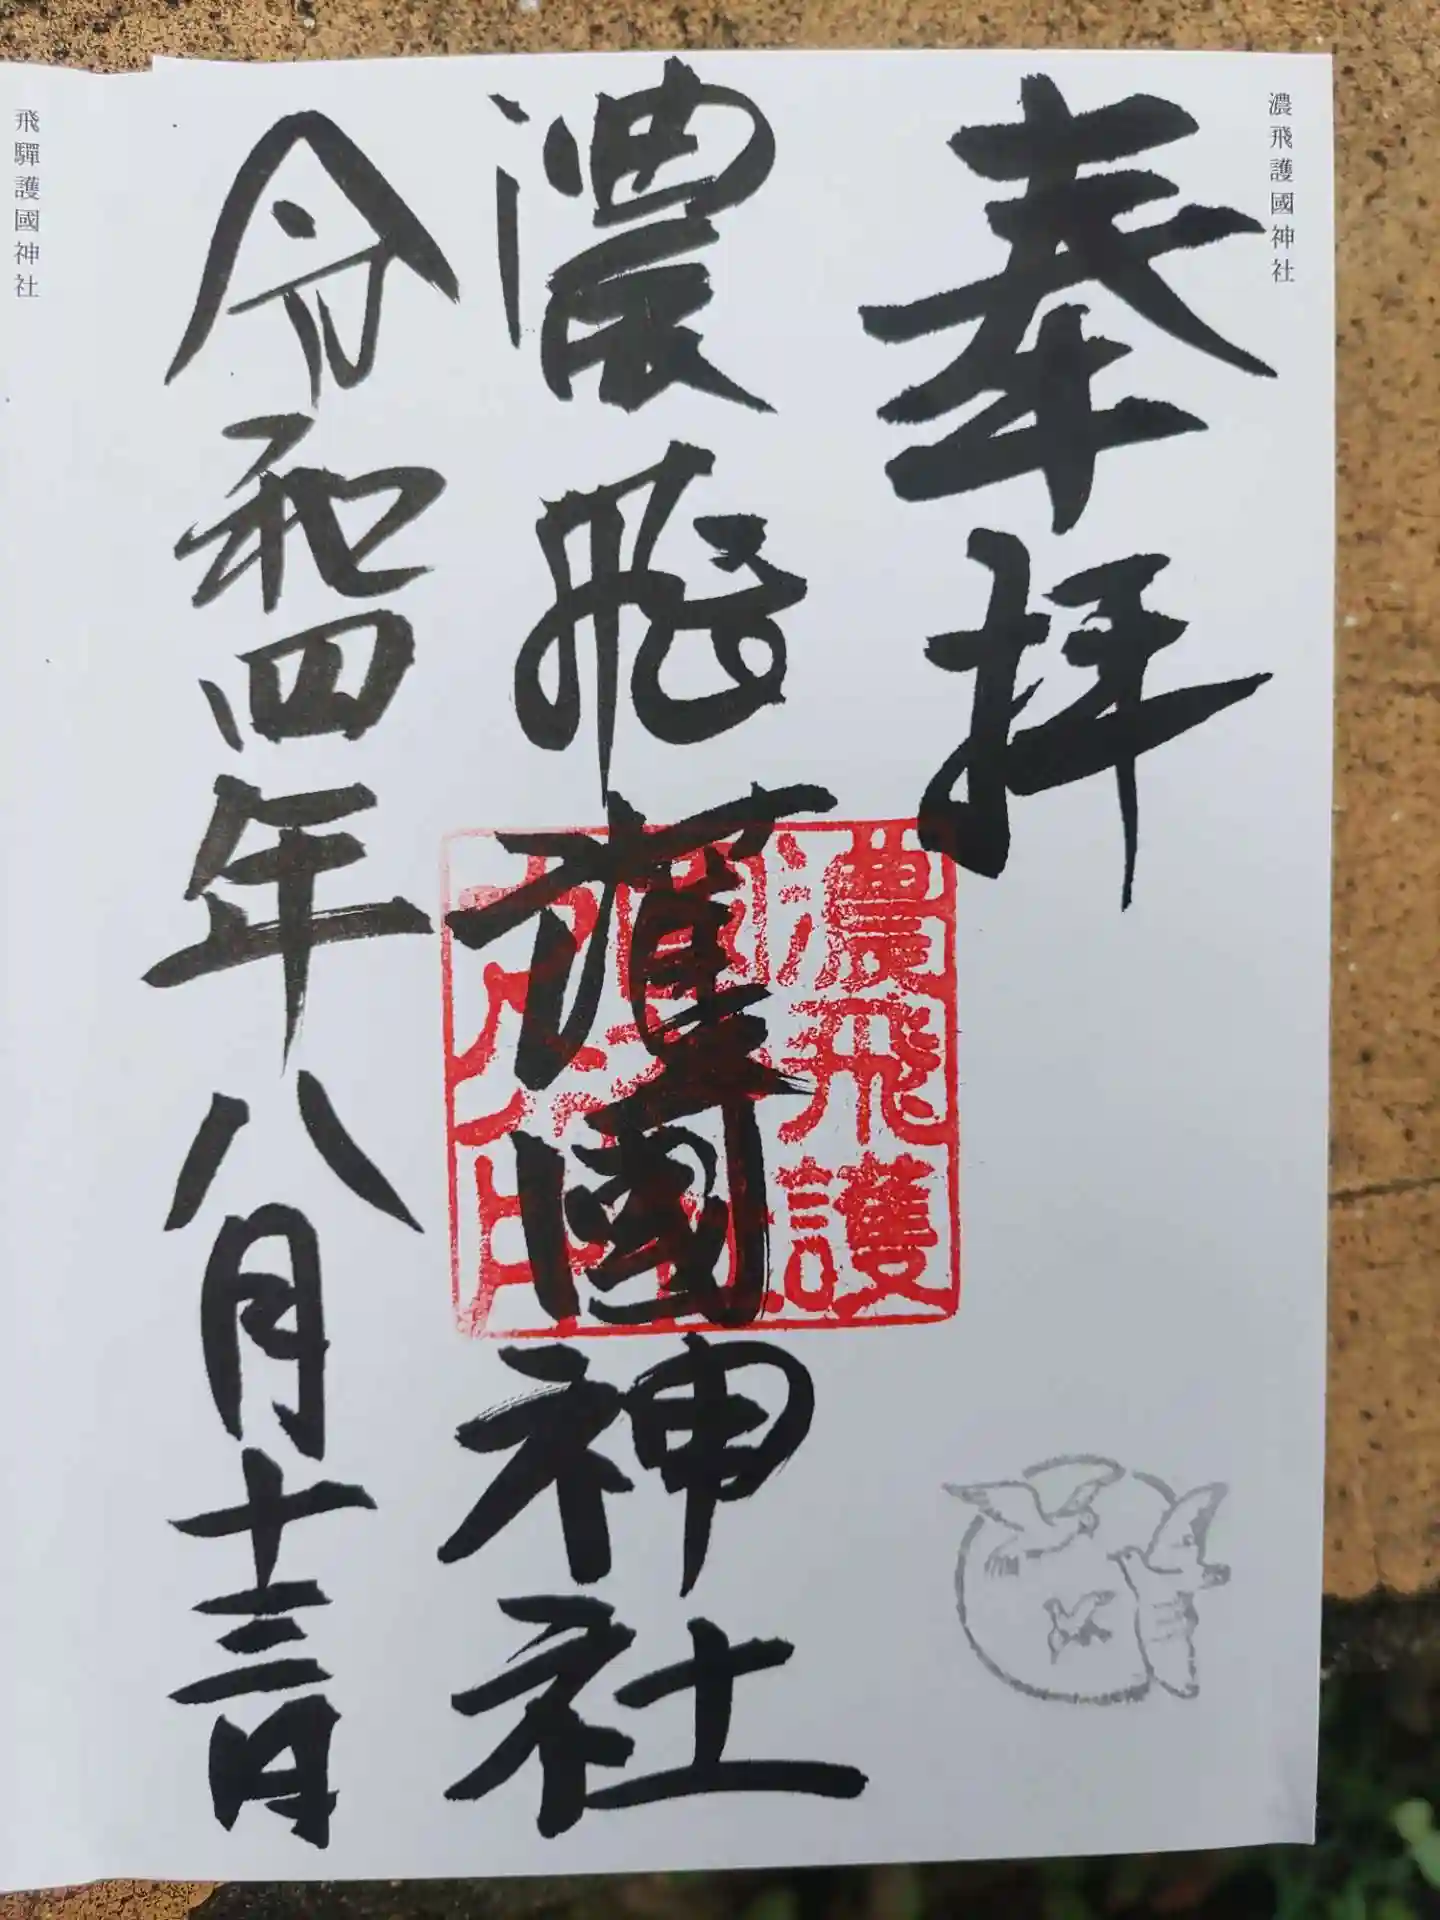 濃飛護國神社
奉拝
濃飛護國神社
令和四年八月十三日
濃飛護
飛驒護國神社